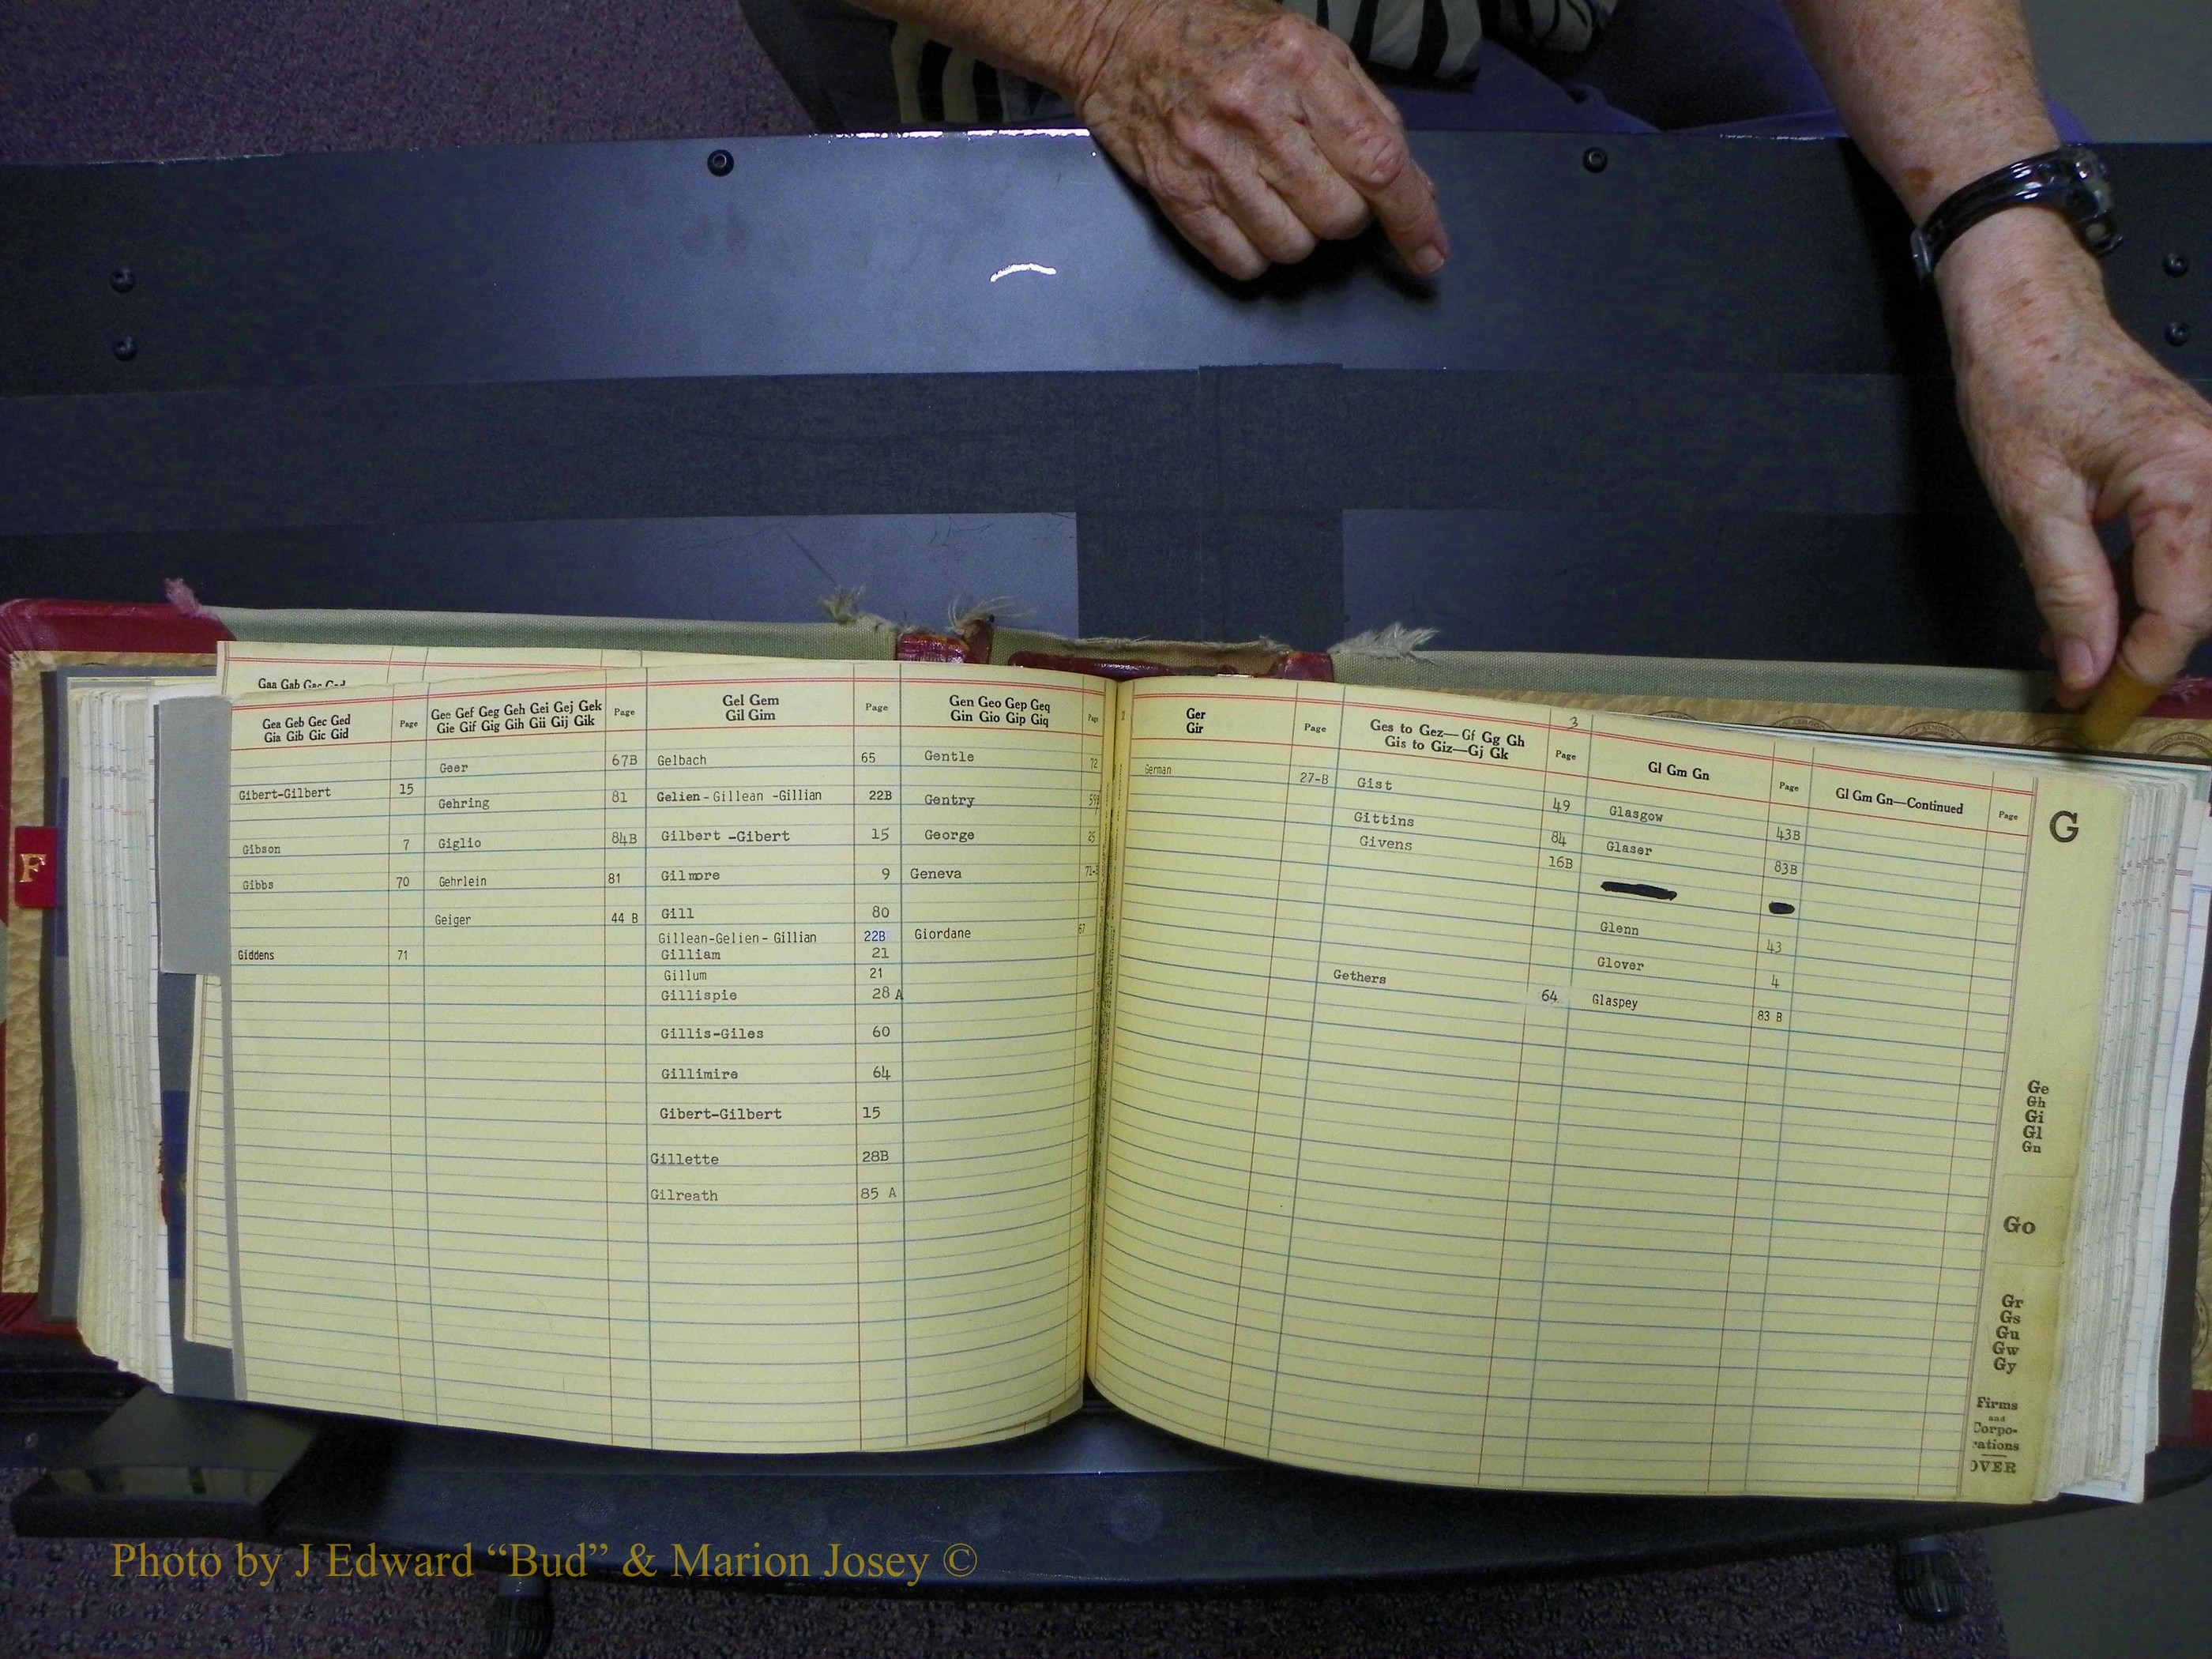 Gaa Gab Gac Gad
Gea Geb Gec Ged
Gia Gib Gic Gid
Page
Gibert-Gilbert 15
Gibson 7
Gibbs 70
Giddens 71
Gee Gef Geg Geh Gei Gej Gek
Gie Gif Gig Gih Gii Gij Gik
Page
Geer 67B
Gehring 81
Giglio 84B
Gehrlein 81
Geiger 44 B
Gel Gem
Gil Gim
Page
Gelbach 65
Gelien-Gillean-Gillian 22B
Gilbert-Gibert 15
Gilmore 9
Gill 80
Gillean-Gelien-Gillian 22B
Gilliam 21
Gillum 21
Gillispie 28 A
Gillis-Giles 60
Gillimire 64
Gibert-Gilbert 15
Gillette 28B
Gilreath 85 A
Gen Geo Gep Geq
Gin Gio Gip Giq
Page
Gentle 72
Gentry
George 25
Geneva
Giordane 67
Ger
Gir
Page
German 27-B
3
Ges to Gez—Gf Gg Gh
Gis to Giz—Gj Gk
Page
Gist 49
Gittins 84
Givens 16B
Gethers 64
Gl Gm Gn
Page
Glasgow 43B
Glaser 83B
Glenn 43
Glover 4
Glaspey 83 B
Gl Gm Gn—Continued
Page
F
G
Ge
Gh
Gi
Gl
Gn
Go
Gr
Gs
Gu
Gw
Gy
Firms
and
Corpo-
rations
OVER
Photo by J Edward “Bud” & Marion Josey ©